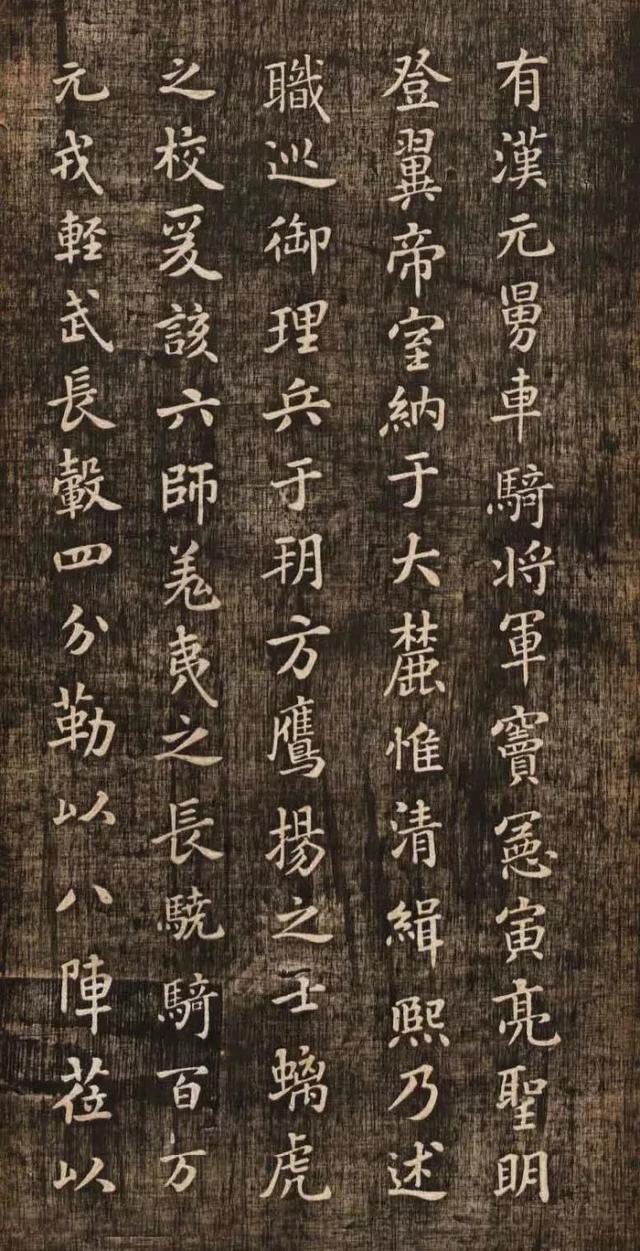 有漢元舅車騎将軍竇憲寅亮聖眀
登翼帝室納于大麓惟清緝熙乃述
職巡御理兵于朔方鷹揚之士螭虎
之校爰該六師羌夷之長驍騎百万
元戎軽武長轂四分勒以八陣莅以